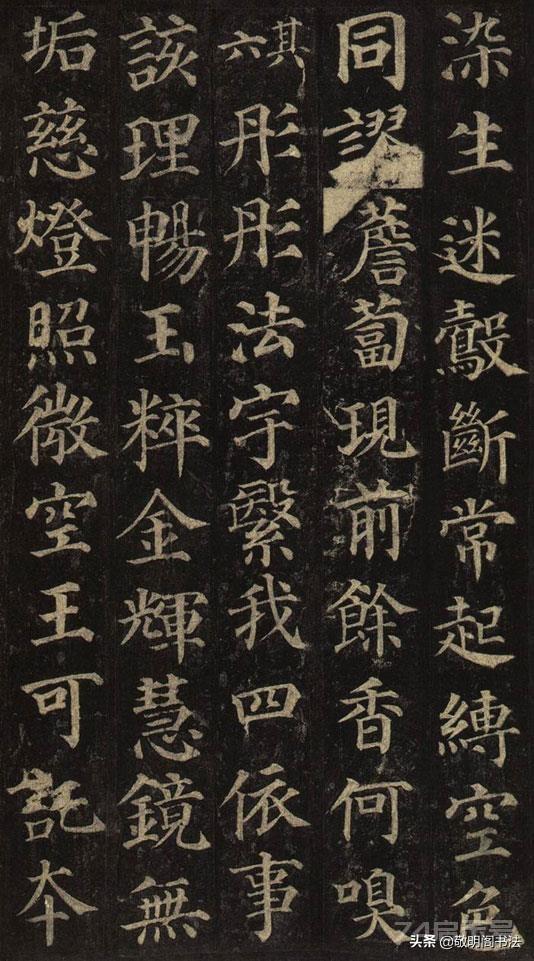 染生迷鷇斷常起縛空色
同謬薝蔔現前餘香何嗅
其六彤彤法宇繄我四依事
該理暢玉粹金輝慧鏡無
垢慈燈照微空王可託夲
头条 @敬明阁书法